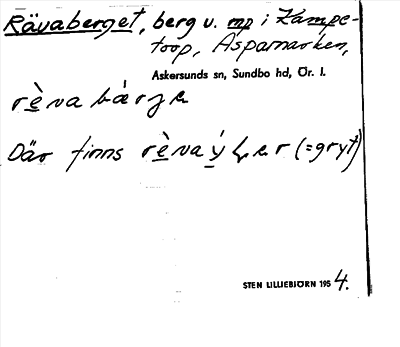 Rävaberget, berg v. mp i Kampe-
torp, Aspamarken,
Askersunds sn, Sundbo hd, Ör. l.
rèva bárje
Där finns rèva (=gryt)
STEN LILLIEBJÖRN 1954.